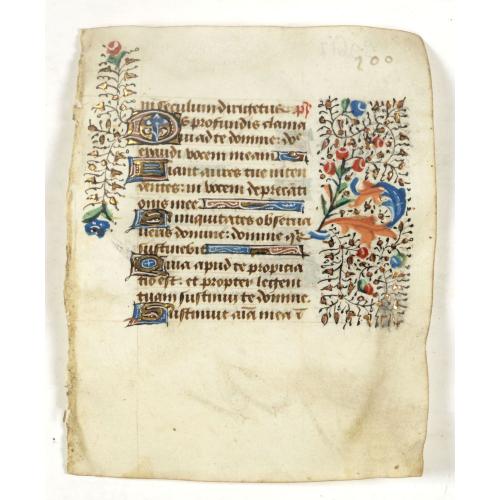 200
in seculum dirigetur. ps
De profundis clama
ui ad te domine: dñe
exaudi vocem meam
Fiant aures tue inten
dentes: in vocem deprecati
onis mee.
Si iniquitates observa
ueris domine: domine quis
sustinebit
Quia apud te propicia
tio est: et propter legem
tuam sustinui te domine.
Sustinuit aīa mea ī